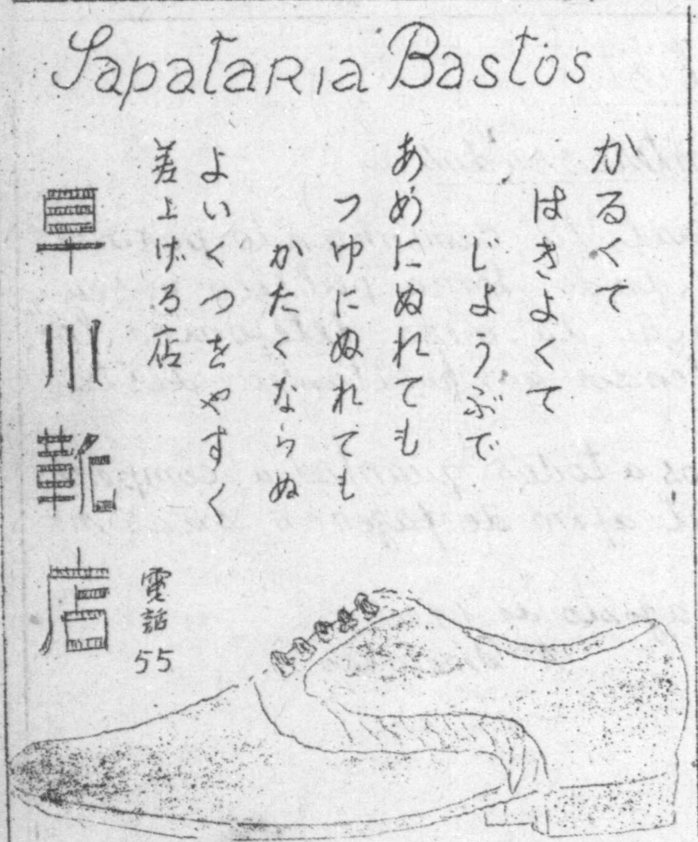 Sapataria Bastos
かるくて
はきよくて
じようぶで
あめにぬれても
つゆにぬれても
かたくならぬ
よいくつをやすく
差上げる店
早川靴店
電話55